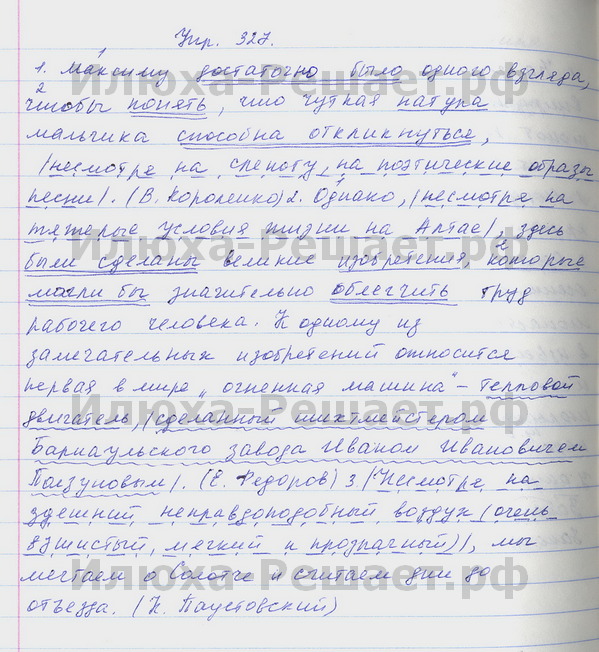 Упр. 327.
1. Максиму достаточно было одного взгляда,
чтобы понять, что чуткая натура
мальчика способна откликнуться,
несмотря на слепоту, на поэтические образы
песни. (В. Короленко) 2. Однако, несмотря на
тяжелые условия жизни на Алтае, здесь
были сделаны великие изобретения, которые
могли бы значительно облегчить труд
рабочего человека. К одному из
замечательных изобретений относится
первая в мире „огненная машина“ - тепловой
двигатель, сделанный шихтмейстером
Барнаульского завода Иваном Ивановичем
Ползуновым. (Е. Федоров) 3 Несмотря на
здешний неправдоподобный воздух (очень
душистый, мягкий и прозрачный), мы
мечтаем о Солотче и считаем дни до
отъезда. (К. Паустовский)
Илюха-Решает.рф
Илюха-Решает.рф
Илюха-Решает.рф
Илюха-Решает.рф